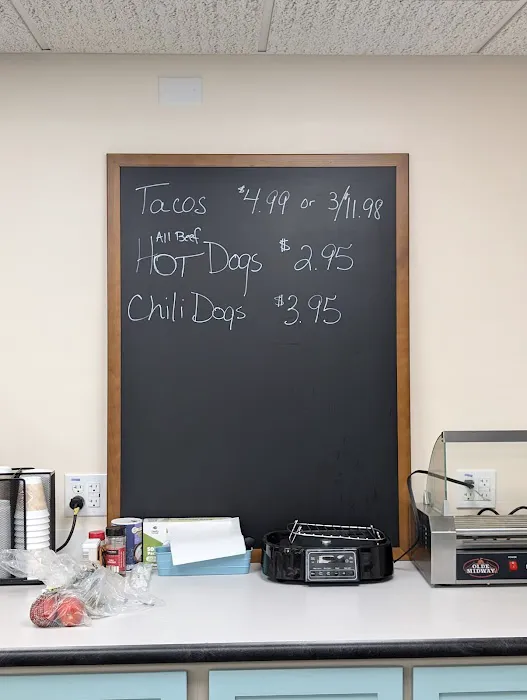 Tacos $4.99 or 3/11.98
All Beef
HOT Dogs $2.95
Chili Dogs $3.95
OLDE
MIDWAY